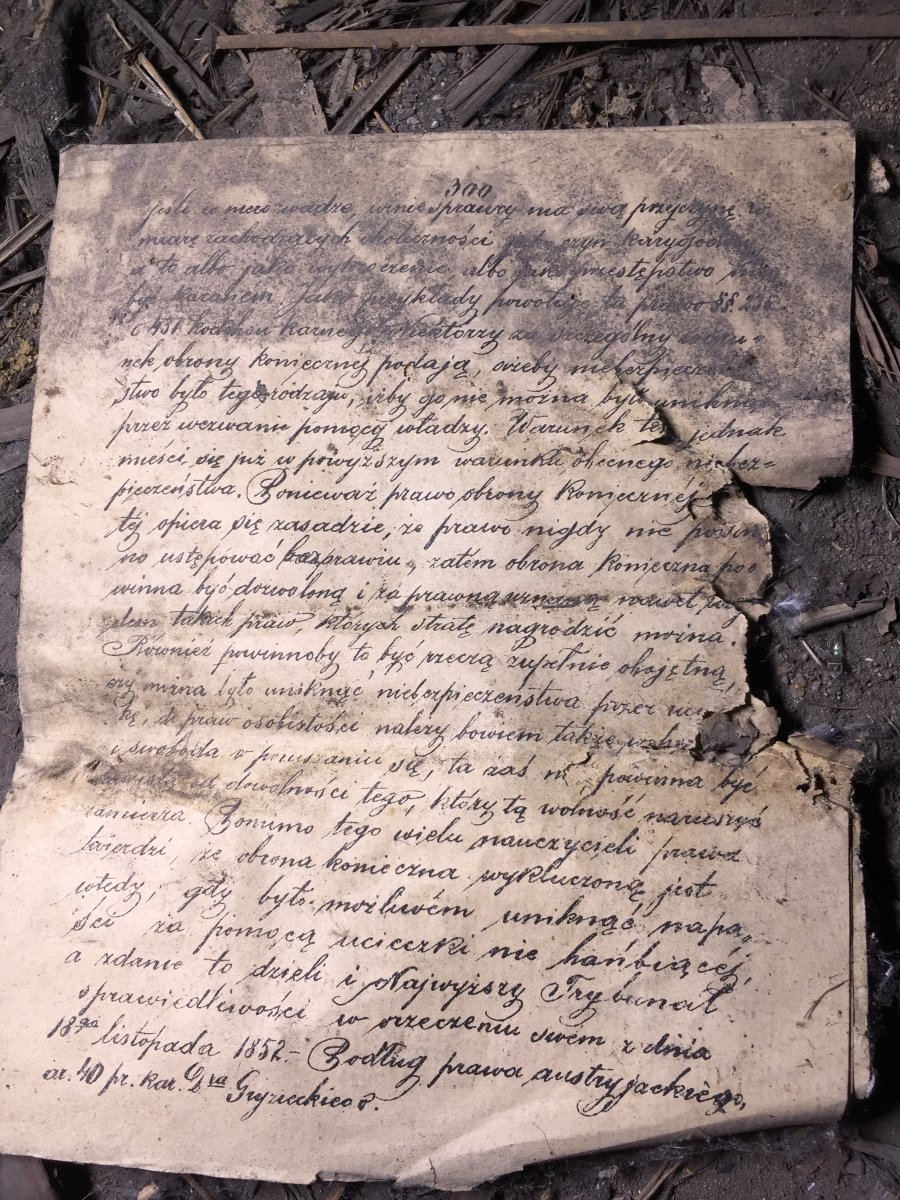 300
jeśli w nierozwadze, winie sprawcy ma swą przyczynę w
miarę zachodzących okoliczności jako czyn karygodny
a to albo jako wykroczenie albo jako występstwo
być karanem. Jako przykłady powołuje ta prawo §§. 235
i 431 kodeksu karnego. Niektórzy za szczególny waru-
nek obrony koniecznéj podają, ażeby niebezpieczeń
stwo było tego rodzaju, iżby go nie można było uniknąć
przez wezwanie pomocy władzy. Warunek ten jednak
mieści się już w powyższym warunku obecnego niebez-
pieczeństwa. Ponieważ prawo obrony koniecznéj
téj opiera się zasadzie, że prawo nigdy nie powin
no ustępować bezprawiu, zatém obrona konieczna po
winna być dozwoloną i za prawną uznaną nawet
dem takich praw, których stratę nagrodzić można.
Również powinnoby to być rzeczą zupełnie obojętną,
czy można było uniknąć niebezpieczeństwa przez uci
kę, do praw osobistości należy bowiem także
i swoboda w poruszaniu się, ta zaś powinna być
od dowolności tego, który tą wolność naruszyć
zamierza. Pomimo tego wielu nauczycieli prawa
twierdzi, że obrona konieczna wykluczoną jest
wtedy, gdy było możliwém uniknąć napa
ści za pomocą ucieczki nie hańbiącéj,
a zdanie to dzieli i Najwyższy Trybunał
sprawiedliwości w orzeczeniu swém z dnia
18go listopada 1852.- Podług prawa austryjackiego,
ar. 40 pr. kar. Dra Gryzieckiego.